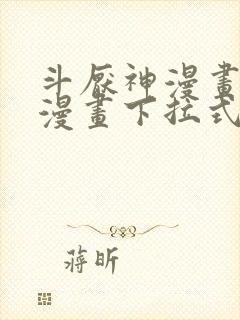 斗厭神漫畫
漫畫下拉式
蔣昕